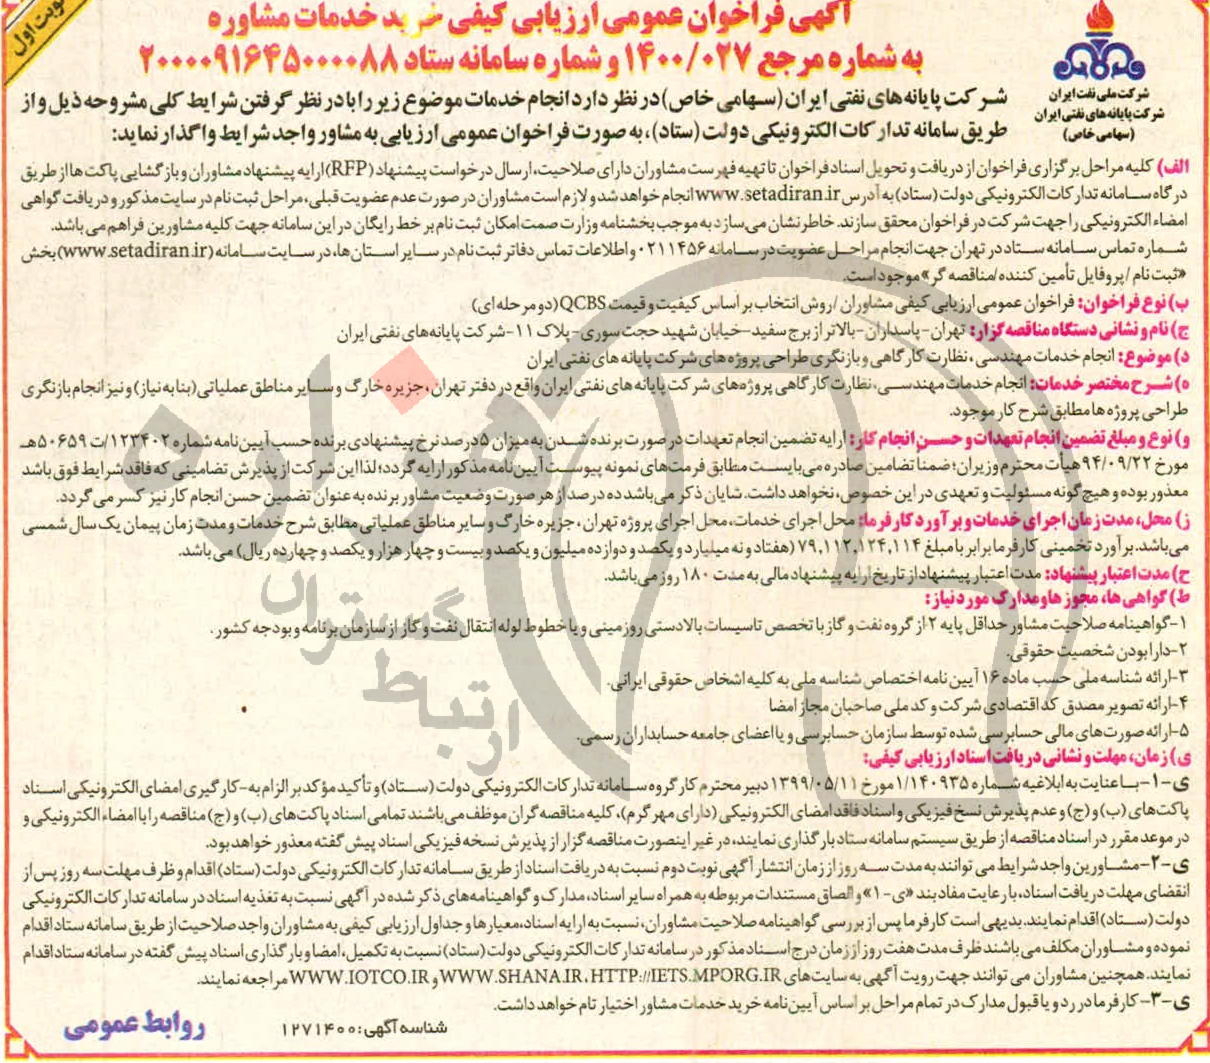 نوبت اول
آگهی فراخوان عمومی ارزیابی کیفی خرید خدمات مشاوره
به شماره مرجع ۱۴۰۰/۰۲۷ و شماره سامانه ستاد ۲۰۰۰۰۹۱۶۴۵۰۰۰۰۸۸
شرکت ملی نفت ایران
شرکت پایانه های نفتی ایران
(سهامی خاص)
شرکت پایانه های نفتی ایران (سهامی خاص) در نظر دارد انجام خدمات موضوع زیر را با در نظر گرفتن شرایط کلی مشروحه ذیل و از
طریق سامانه تدارکات الکترونیکی دولت (ستاد)، به صورت فراخوان عمومی ارزیابی به مشاور واجد شرایط واگذار نماید:
الف) کلیه مراحل برگزاری فراخوان از دریافت و تحویل اسناد فراخوان تا تهیه فهرست مشاوران دارای صلاحیت، ارسال درخواست پیشنهاد (RFP) ارایه پیشنهاد مشاوران و بازگشایی پاکت ها از طریق
درگاه سامانه تدارکات الکترونیکی دولت (ستاد) به آدرس www.setadiran.ir انجام خواهد شد و لازم است مشاوران در صورت عدم عضویت قبلی، مراحل ثبت نام در سایت مذکور و دریافت گواهی
امضاء الکترونیکی را جهت شرکت در فراخوان محقق سازند. خاطرنشان می‌سازد به موجب بخشنامه وزارت صمت امکان ثبت نام بر خط رایگان در این سامانه جهت کلیه مشاورین فراهم می باشد.
شماره تماس سامانه ستاد در تهران جهت انجام مراحل عضویت در سامانه ۰۲۱۱۴۵۶ و اطلاعات تماس دفاتر ثبت نام در سایر استان ها، در سایت سامانه (www.setadiran.ir) بخش
«ثبت نام / پروفایل تأمین کننده/مناقصه گر» موجود است.
ب) نوع فراخوان: فراخوان عمومی ارزیابی کیفی مشاوران / روش انتخاب بر اساس کیفیت و قیمت QCBS (دو مرحله ای)
ج) نام و نشانی دستگاه مناقصه گزار: تهران- پاسداران- بالاتر از برج سفید- خیابان شهید حجت سوری- پلاک ۱۱- شرکت پایانه های نفتی ایران
د) موضوع: انجام خدمات مهندسی، نظارت کارگاهی و بازنگری طراحی پروژه های شرکت پایانه های نفتی ایران
ه) شرح مختصر خدمات: انجام خدمات مهندسی، نظارت کارگاهی پروژه های شرکت پایانه های نفتی ایران واقع در دفتر تهران، جزیره خارگ و سایر مناطق عملیاتی (بنا به نیاز) و نیز انجام بازنگری
طراحی پروژه ها مطابق شرح کار موجود.
و) نوع و مبلغ تضمین انجام تعهدات و حسن انجام کار: ارایه تضمین انجام تعهدات در صورت برنده شدن به میزان ۵ درصد نرخ پیشنهادی برنده حسب آیین نامه شماره ۱۲۳۴۰۲/ت ۵۰۶۵۹هـ
مورخ ۹۴/۰۹/۲۲ هیأت محترم وزیران؛ ضمناً تضامین صادره می بایست مطابق فرمت های نمونه پیوست آیین نامه مذکور ارایه گردد؛ لذا این شرکت از پذیرش تضامینی که فاقد شرایط فوق باشد
معذور بوده و هیچ گونه مسئولیت و تعهدی در این خصوص، نخواهد داشت. شایان ذکر می باشد ده درصد از هر صورت وضعیت مشاور برنده به عنوان تضمین حسن انجام کار نیز کسر می گردد.
ز) محل، مدت زمان اجرای خدمات و برآورد کارفرما: محل اجرای خدمات، محل اجرای پروژه تهران، جزیره خارگ و سایر مناطق عملیاتی مطابق شرح خدمات و مدت زمان پیمان یک سال شمسی
می باشد. برآورد تخمینی کارفرما برابر با مبلغ ۷۹,۱۱۲,۱۲۴,۱۱۴ (هفتاد و نه میلیارد و یکصد و دوازده میلیون و یکصد و بیست و چهار هزار و یکصد و چهارده ریال) می باشد.
ح) مدت اعتبار پیشنهاد: مدت اعتبار پیشنهاد از تاریخ ارایه پیشنهاد مالی به مدت ۱۸۰ روز می باشد.
ط) گواهی ها، مجوزها و مدارک مورد نیاز:
۱- گواهینامه صلاحیت مشاور حداقل پایه ۲ از گروه نفت و گاز با تخصص تاسیسات بالادستی روزمینی و یا خطوط لوله انتقال نفت و گاز از سازمان برنامه و بودجه کشور.
۲- دارا بودن شخصیت حقوقی.
۳- ارائه شناسه ملی حسب ماده ۱۶ آیین نامه اختصاص شناسه ملی به کلیه اشخاص حقوقی ایرانی.
۴- ارائه تصویر مصدق کد اقتصادی شرکت و کد ملی صاحبان مجاز امضا
۵- ارائه صورت های مالی حسابرسی شده توسط سازمان حسابرسی و یا اعضای جامعه حسابداران رسمی.
ی) زمان، مهلت و نشانی دریافت اسناد ارزیابی کیفی:
ی-۱- با عنایت به ابلاغیه شماره ۱/۱۴۰۹۳۵ مورخ ۱۳۹۹/۰۵/۱۱ دبیر محترم کارگروه سامانه تدارکات الکترونیکی دولت (ستاد) و تأکید مؤکد بر الزام به- کارگیری امضای الکترونیکی اسناد
پاکت های (ب) و (ج) و عدم پذیرش نسخ فیزیکی و اسناد فاقد امضای الکترونیکی (دارای مهر گرم)، کلیه مناقصه گران موظف می باشند تمامی اسناد پاکت های (ب) و (ج) مناقصه را با امضاء الکترونیکی و
در موعد مقرر در اسناد مناقصه از طریق سیستم سامانه ستاد بارگذاری نمایند، در غیر اینصورت مناقصه گزار از پذیرش نسخه فیزیکی اسناد پیش گفته معذور خواهد بود.
ی-۲- مشاورین واجد شرایط می توانند به مدت سه روز از زمان انتشار آگهی نوبت دوم نسبت به دریافت اسناد از طریق سامانه تدارکات الکترونیکی دولت (ستاد) اقدام و ظرف مهلت سه روز پس از
انقضای مهلت دریافت اسناد، با رعایت مفاد بند «ی-۱» و الصاق مستندات مربوطه به همراه سایر اسناد، مدارک و گواهینامه های ذکر شده در آگهی نسبت به تغذیه اسناد در سامانه تدارکات الکترونیکی
دولت (ستاد) اقدام نمایند. بدیهی است کارفرما پس از بررسی گواهینامه صلاحیت مشاوران، نسبت به ارایه اسناد، معیارها و جداول ارزیابی کیفی به مشاوران واجد صلاحیت از طریق سامانه ستاد اقدام
نموده و مشاوران مکلف می باشند ظرف مدت هفت روز از زمان درج اسناد مذکور در سامانه تدارکات الکترونیکی دولت (ستاد) نسبت به تکمیل، امضا و بارگذاری اسناد پیش گفته در سامانه ستاد اقدام
نمایند. همچنین مشاوران می توانند جهت رویت آگهی به سایت های WWW.SHANA.IR، HTTP://IETS.MPORG.IR و WWW.IOTCO.IR مراجعه نمایند.
ی-۳- کارفرما در رد و یا قبول مدارک در تمام مراحل بر اساس آیین نامه خرید خدمات مشاور اختیار تام خواهد داشت.
شناسه آگهی: ۱۲۷۱۴۰۰
روابط عمومی
هزاره
گستران
ارتباط